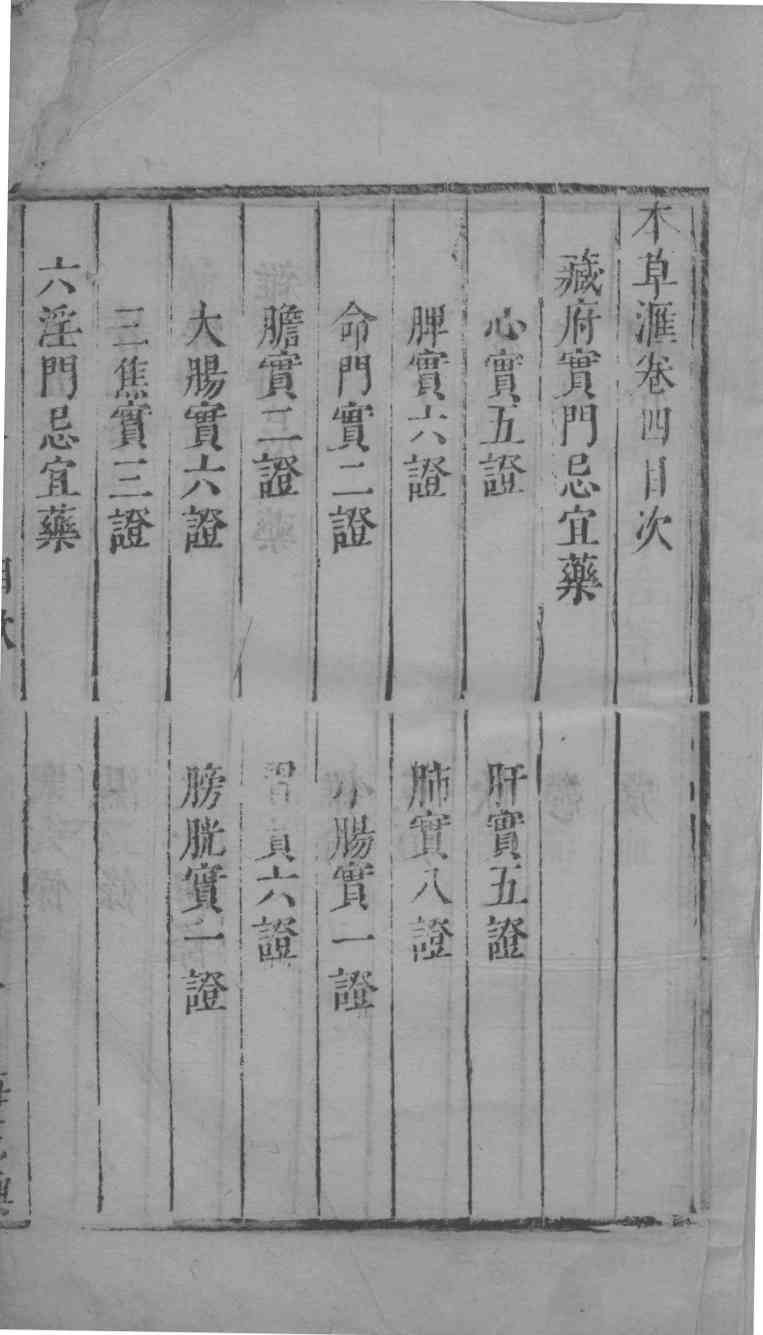 本草滙卷四目次
藏府實門忌宜藥
心實五證　肝實五證
脾實六證　肺實八證
命門實二證　小腸實一證
膽實二證　胃實六證
大腸實六證　膀胱實二證
三焦實三證
六淫門忌宜藥
目次